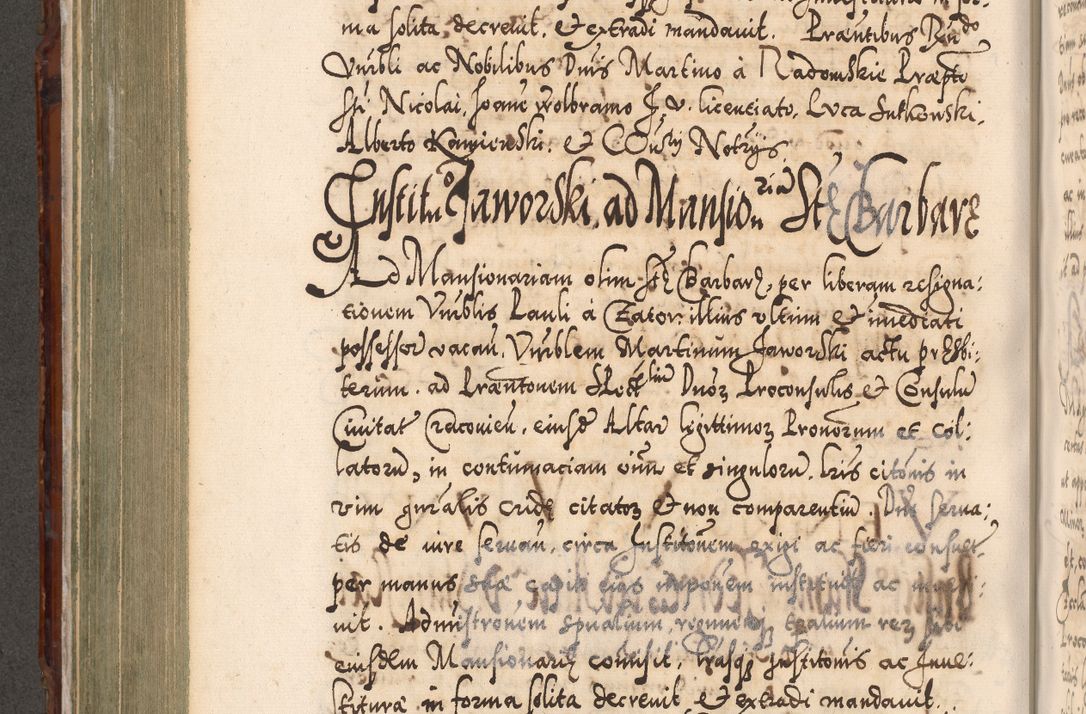 ma solita decrevit. Et extradi mandavit. Præntibus Rndo
Vnrbli ac Nobilibus Dnis Martino à Radomskie Præpto
Sti Nicolai, Joane Wolbramo J. V. licenciato, Luca Sutkowski,
Alberto Kamienski. et Notrijs
Institu Jaworski ad Mansionriā Stę Barbarę
Ad Mansionariam olim Stę Barbarę, per liberam resigna:
tionem Vnrblis Pauli à Zator. illius vltim et imediati
possessor vacan. Vnrblem Martinum Jaworski actu præsbi:
terum. ad Præntonem Dnor Proconsulis et Consulū
Civitat Cracovień. eiusd Altar legittimor Pronorum et Col:
latorū, in contumaciam oīum et singulorū, lris citonis in
vim gnralis cridę citator et non comparentiū. Dne Serva:
tis de iure servan. circa Institonem exigi ac fieri consuet.
per manus suæ capiti eius imponem instituit ac
vit. Admistronem spualium, regimenq tpalium rer sibi
eiusdem Mansionarię comisit, lrasq Institonis ac Inve:
stituræ in forma solita decrevit et extradi mandavit.